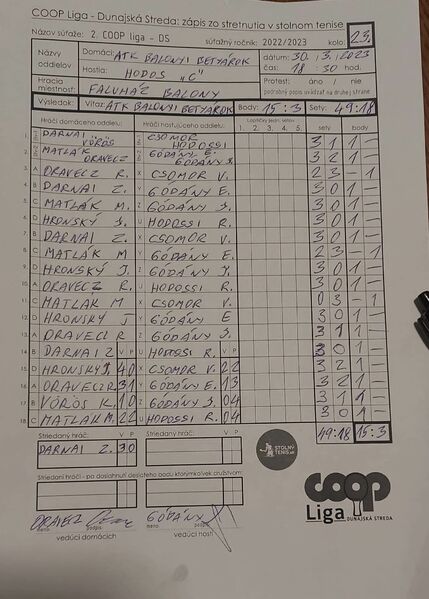 COOP Liga - Dunajská Streda: zápis zo stretnutia v stolnom tenise
Názov súťaže: 2. COOP liga - DS súťažný ročník: 2022/2023 kolo: 23.
Názvy oddielov
Domáci: ATK BALONYI BETYÁROK dátum: 30. 3. 2023
Hostia: HODOS "C" čas: 18:30
Hracia miestnosť FALUHÁZ BALONY Protest: áno / nie
podrobný popis uvádzať na druhej strane
Výsledok: Víťaz: ATK BALONYI BETYÁROK Body: 15:3 Sety: 49:18
Hráči domáceho oddielu: Hráči hosťujúceho oddielu: 1. 2. 3. 4. 5. sety body
1. DARNAI VÖRÖS CSOMOR HODOSSI 3 1 1 -
2. MATLÁK ORAVECZ GÓDÁNY E. GÓDÁNY J. 3 2 1 -
3. A ORAVECZ R. X CSOMOR V. 2 3 - 1
4. B DARNAI Z. Y GÓDÁNY E. 3 0 1 -
5. C MATLÁK M. Z GÓDÁNY J. 3 0 1 -
6. D HRONSKÝ J. U HODOSSI R. 3 0 1 -
7. B DARNAI Z. X CSOMOR V. 3 0 1 -
8. C MATLÁK M Y GÓDÁNY E. 2 3 - 1
9. D HRONSKÝ J. Z GÓDÁNY J. 3 0 1 -
10. A ORAVECZ R. U HODOSSI R. 3 0 1 -
11. C MATLAK M X CSOMOR V. 0 3 - 1
12. D HRONSKY J Y GÓDÁNY E 3 0 1 -
13. A ORAVECZ R Z GÓDÁNY J. 3 1 1 -
14. B DARNAI Z V P U HODOSSI R. V P 3 0 1 -
15. D HRONSKÝ J. 4 0 X CSOMOR V. 2 2 3 2 1 -
16. A ORAVECZ R. 3 1 Y GÓDÁNY E. 1 3 3 2 1 -
17. B VÖRÖS K. 1 0 Z GÓDÁNY J. 0 4 3 1 1 -
18. C MATLAK M. 2 2 U HODOSSI R. 0 4 3 0 1 -
Striedaný hráč: V P Striedaný hráč: V P 49:18 15:3
DARNAI Z. 3 0
STOLNÝ TENIS.sk
Striedaný hráč - po dosiahnutí desiateho bodu ktorýmkoľvek družstvom:
coop
Liga DUNAJSKÁ STREDA
ORAVECZ GÓDÁNY
meno podpis meno podpis
vedúci domácich vedúci hostí